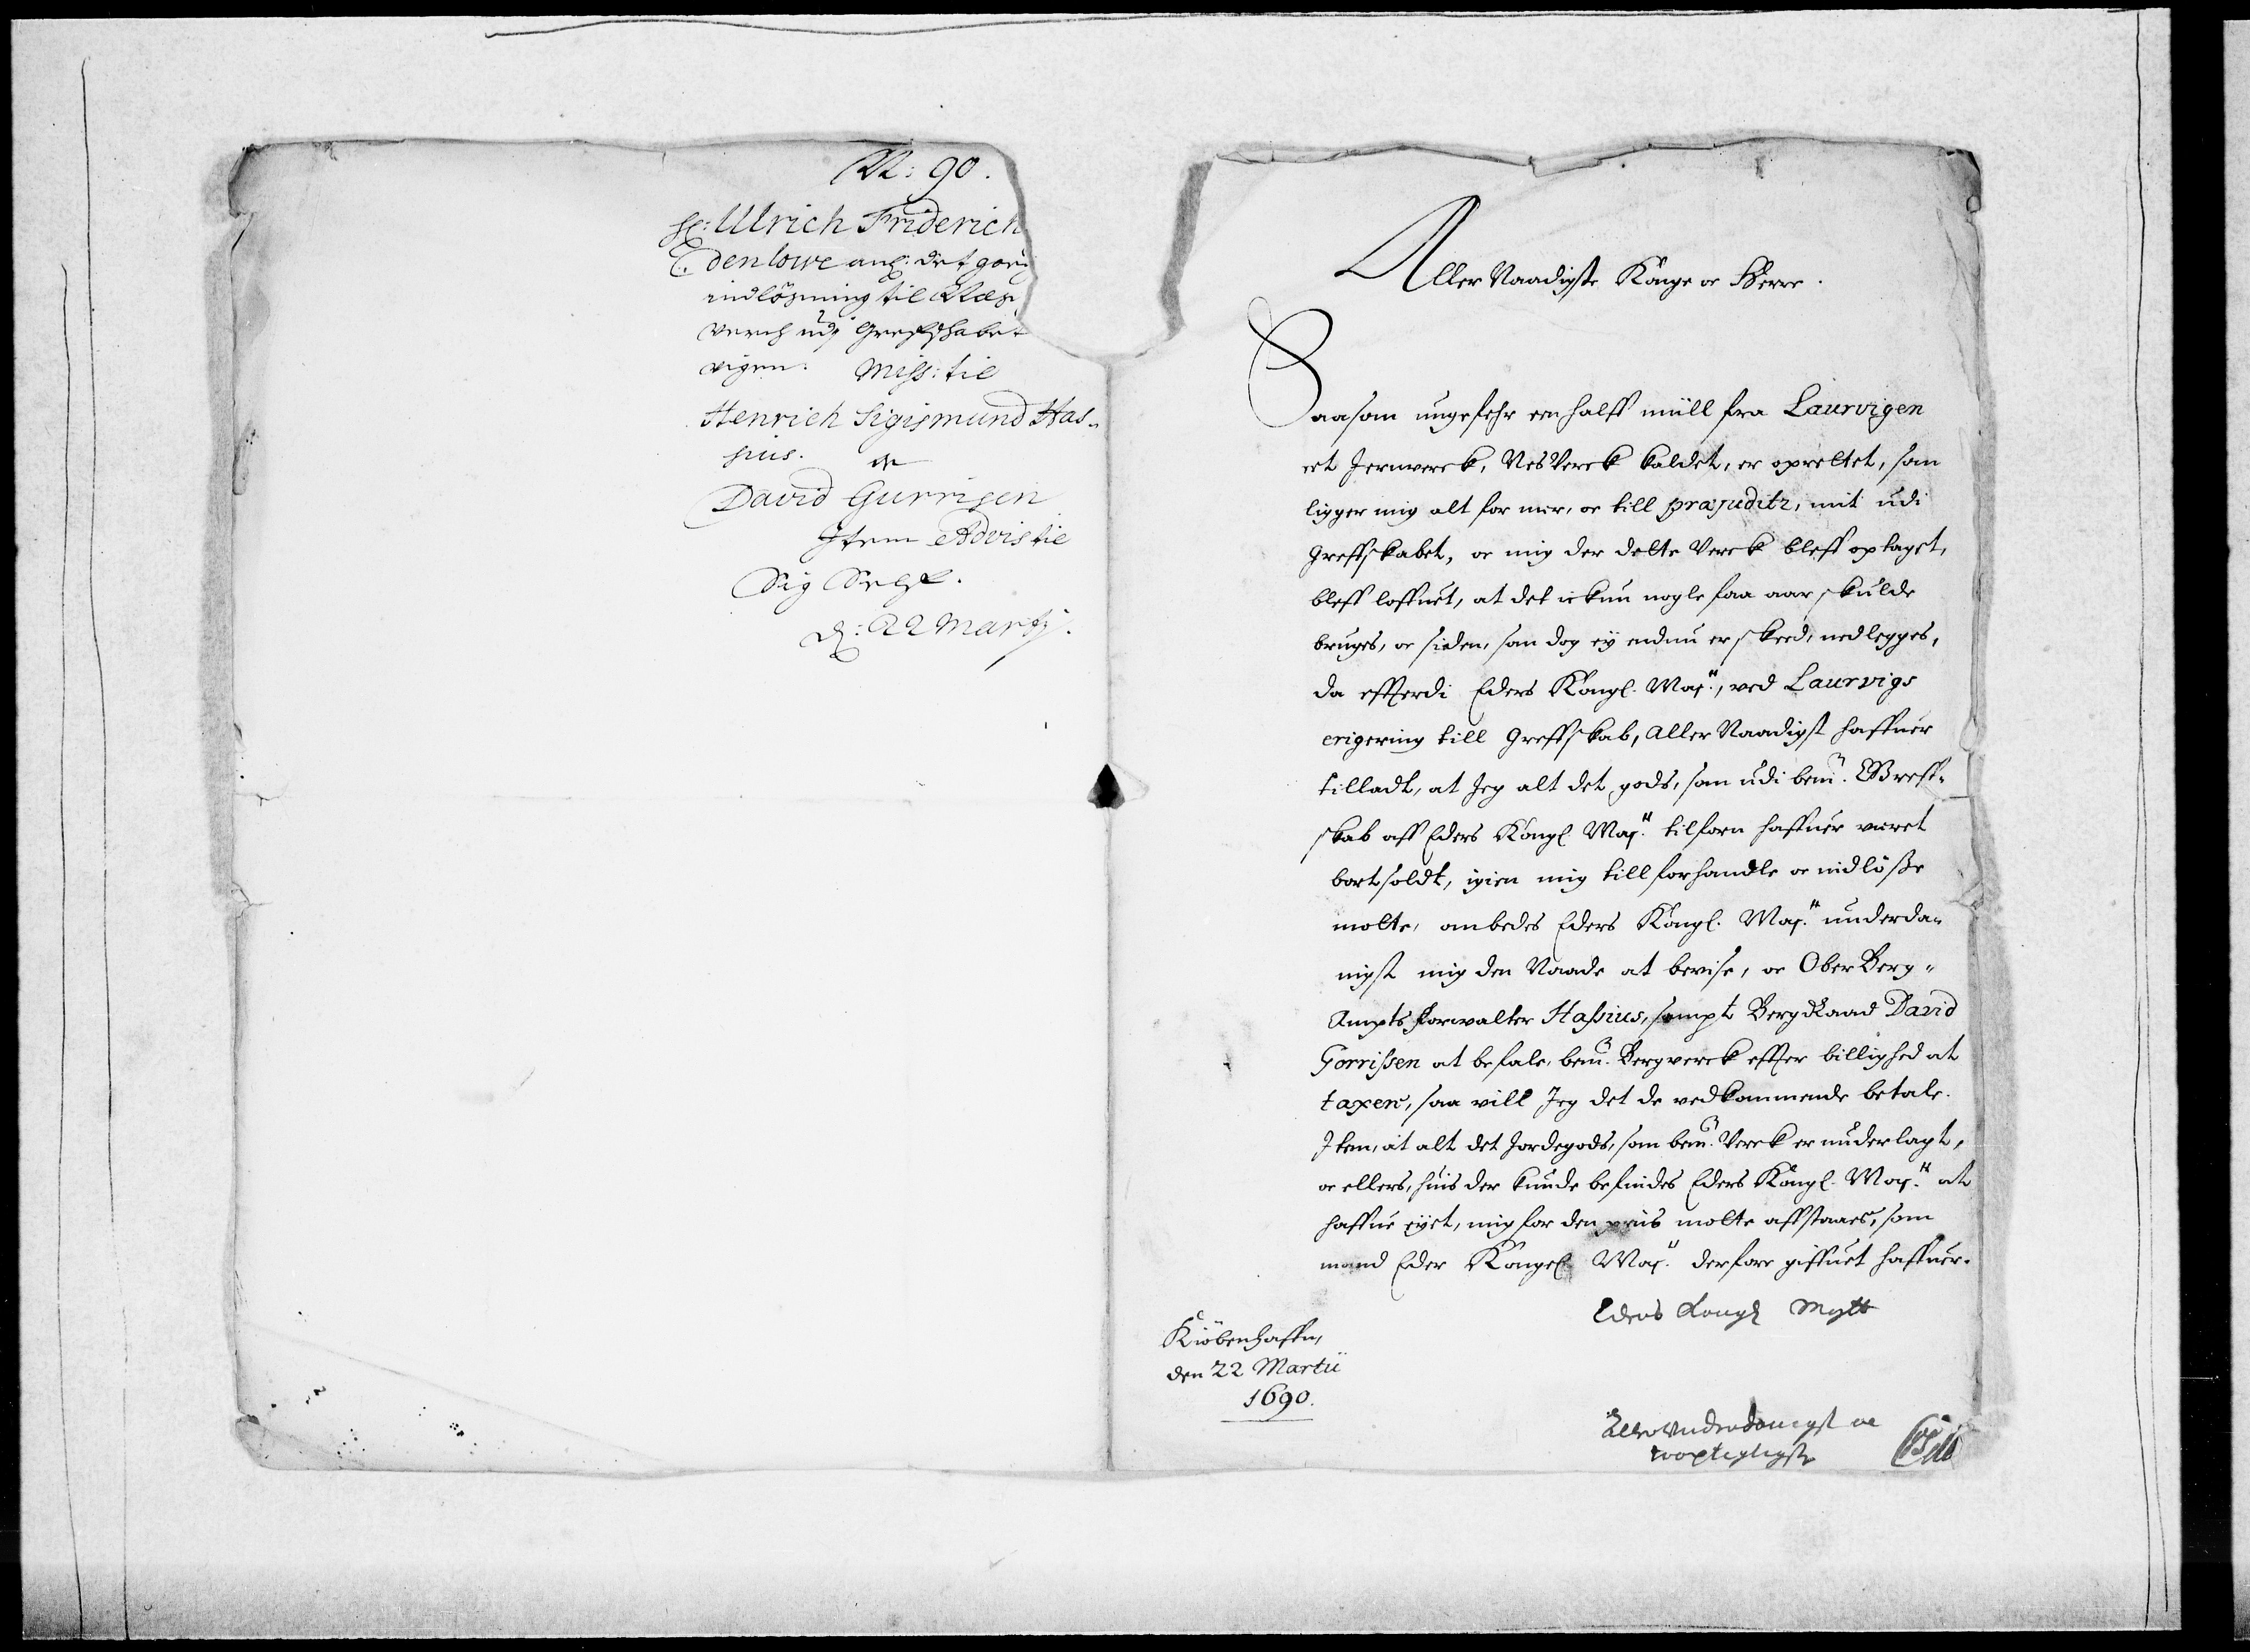 N: 90.
H: Ulrich Friderich
Gyldenlowe ang: det
indlösning til Næs
verch udj Grefschabet
vigen. Miss: til
Henrich Sigismund Has-
sius. oc
David Gurrisen
Item Advis til
Sig Selff.
d: 22 Martij.
Aller Naadigste Konge oc Herre.
Saasom ungefehr een halff müll fra Laurvigen
eet Jernverck, Nes Verck kaldet, er oprettet, som
ligger mig alt for nær, oc till præjuditz, mit udi
Greffskabet, oc mig der dette Verck bleff optaget,
bleff loffuet, at det ickun nogle faa aar skulde
bruges, oc siden, som dog ey endnu er skeed, nedlegges,
da efftterdi Eders Kongl. Maj.tt, ved Laurvigs
erigering till Greffskab, Aller Naadigst haffuer
tilladt, at Jeg alt det gods, som udi bem.te Greff-
skab aff Eders Kongl. Maj.tt tilforn haffuer været
bortsoldt, igien mig till forhandle oc indlösse
motte, ombedes Eders Kongl. Maj.tt underda-
nigst mig den Naade at bevise, oc Ober Berg-
Ampts forwalter Hassius, sampt BergRaad David
Gorrissen at befale, bem.te Bergverck effter billighed at
taxere, saa vill Jeg det de vedkommende betale.
Item, at alt det Jordegods, som bem.te Verck er underlagt,
oc ellers, huis der kunde befindes Eders Kongl. Maj.tt at
haffue eyet, mig for den priis motte affstaaes, som
mand Eder Kongel. Maj.tt derfore giffuet haffuer.
Eders Kongl Mayts
Kiöbenhaffn,
den 22 Martii
1690.
Allerunderdanigst oc